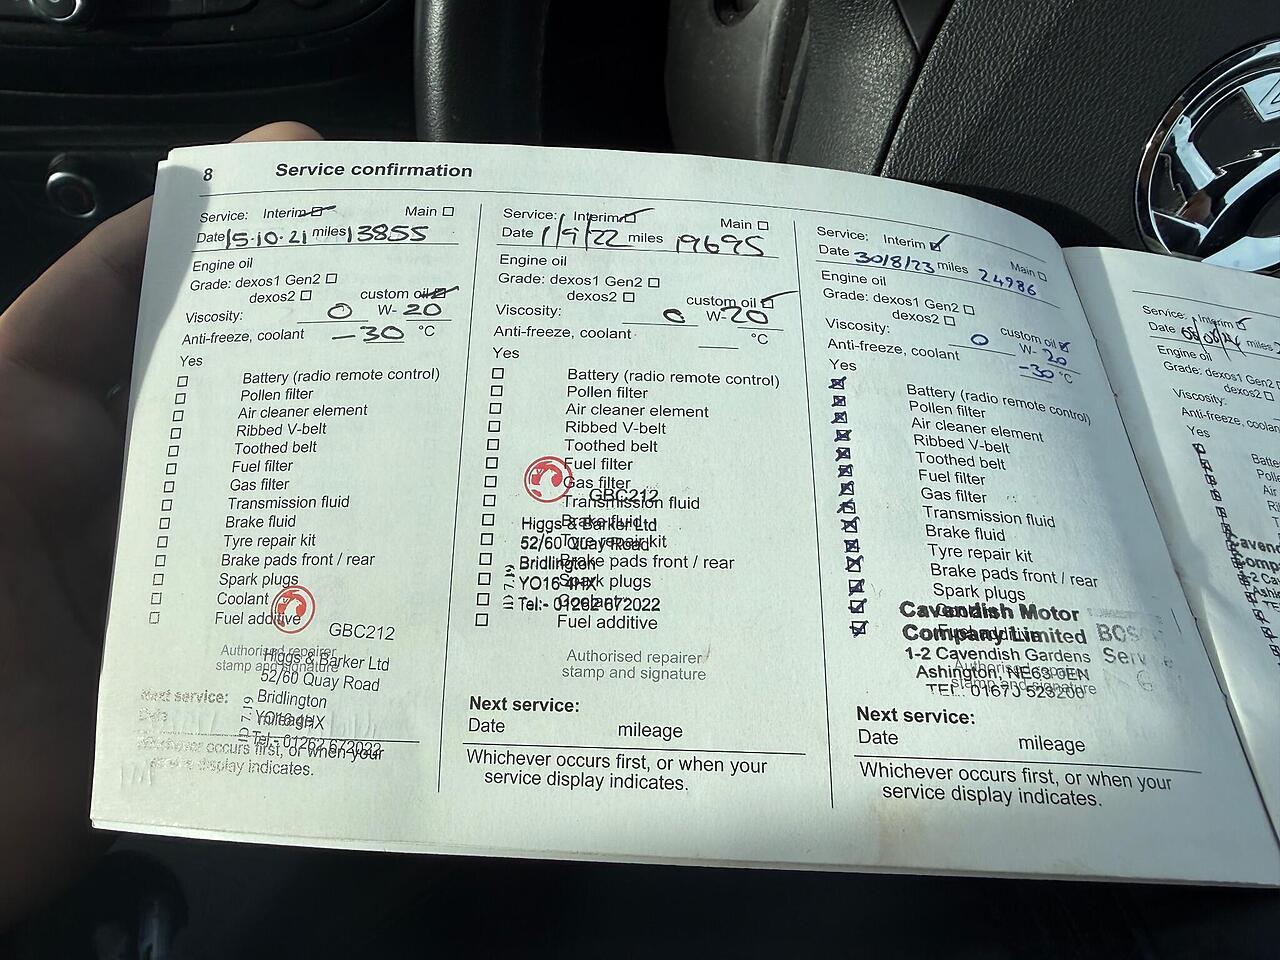 8 Service confirmation
Service: Interim Main
Date 15.10.21 miles 13855
Engine oil
Grade: dexos1 Gen2
dexos2 custom oil
Viscosity: 0 W- 20
Anti-freeze, coolant -30 °C
Yes
Battery (radio remote control)
Pollen filter
Air cleaner element
Ribbed V-belt
Toothed belt
Fuel filter
Gas filter
Transmission fluid
Brake fluid
Tyre repair kit
Brake pads front / rear
Spark plugs
Coolant
Fuel additive
GBC212
Authorised repairer
stamp and signature
Higgs & Barker Ltd
52/60 Quay Road
Bridlington
YO16 4HX
Tel:- 01262 672022
Next service:
Date mileage
Whichever occurs first, or when your
service display indicates.
Service: Interim Main
Date 1/9/22 miles 19695
Engine oil
Grade: dexos1 Gen2
dexos2 custom oil
Viscosity: 0 W- 20
Anti-freeze, coolant °C
Yes
Battery (radio remote control)
Pollen filter
Air cleaner element
Ribbed V-belt
Toothed belt
Fuel filter
Gas filter
GBC212
Transmission fluid
Brake fluid
Higgs & Barker Ltd
Tyre repair kit
52/60 Quay Road
Brake pads front / rear
Bridlington
Spark plugs
YO16 4HX
Coolant
Tel:- 01262 672022
Fuel additive
Authorised repairer
stamp and signature
Next service:
Date mileage
Whichever occurs first, or when your
service display indicates.
Service: Interim Main
Date 30/8/23 miles 24986
Engine oil
Grade: dexos1 Gen2
dexos2 custom oil
Viscosity: 0 W- 20
Anti-freeze, coolant -30 °C
Yes
Battery (radio remote control)
Pollen filter
Air cleaner element
Ribbed V-belt
Toothed belt
Fuel filter
Gas filter
Transmission fluid
Brake fluid
Tyre repair kit
Brake pads front / rear
Spark plugs
Coolant
Fuel additive
Cavendish Motor
Company Limited
1-2 Cavendish Gardens
Ashington, NE63 0EN
TEL: 01670 523200
Authorised repairer
stamp and signature
Next service:
Date mileage
Whichever occurs first, or when your
service display indicates.
Service: Interim
Date miles
Engine oil
Grade: dexos1 Gen2
dexos2
Viscosity:
Anti-freeze, coolant
Yes